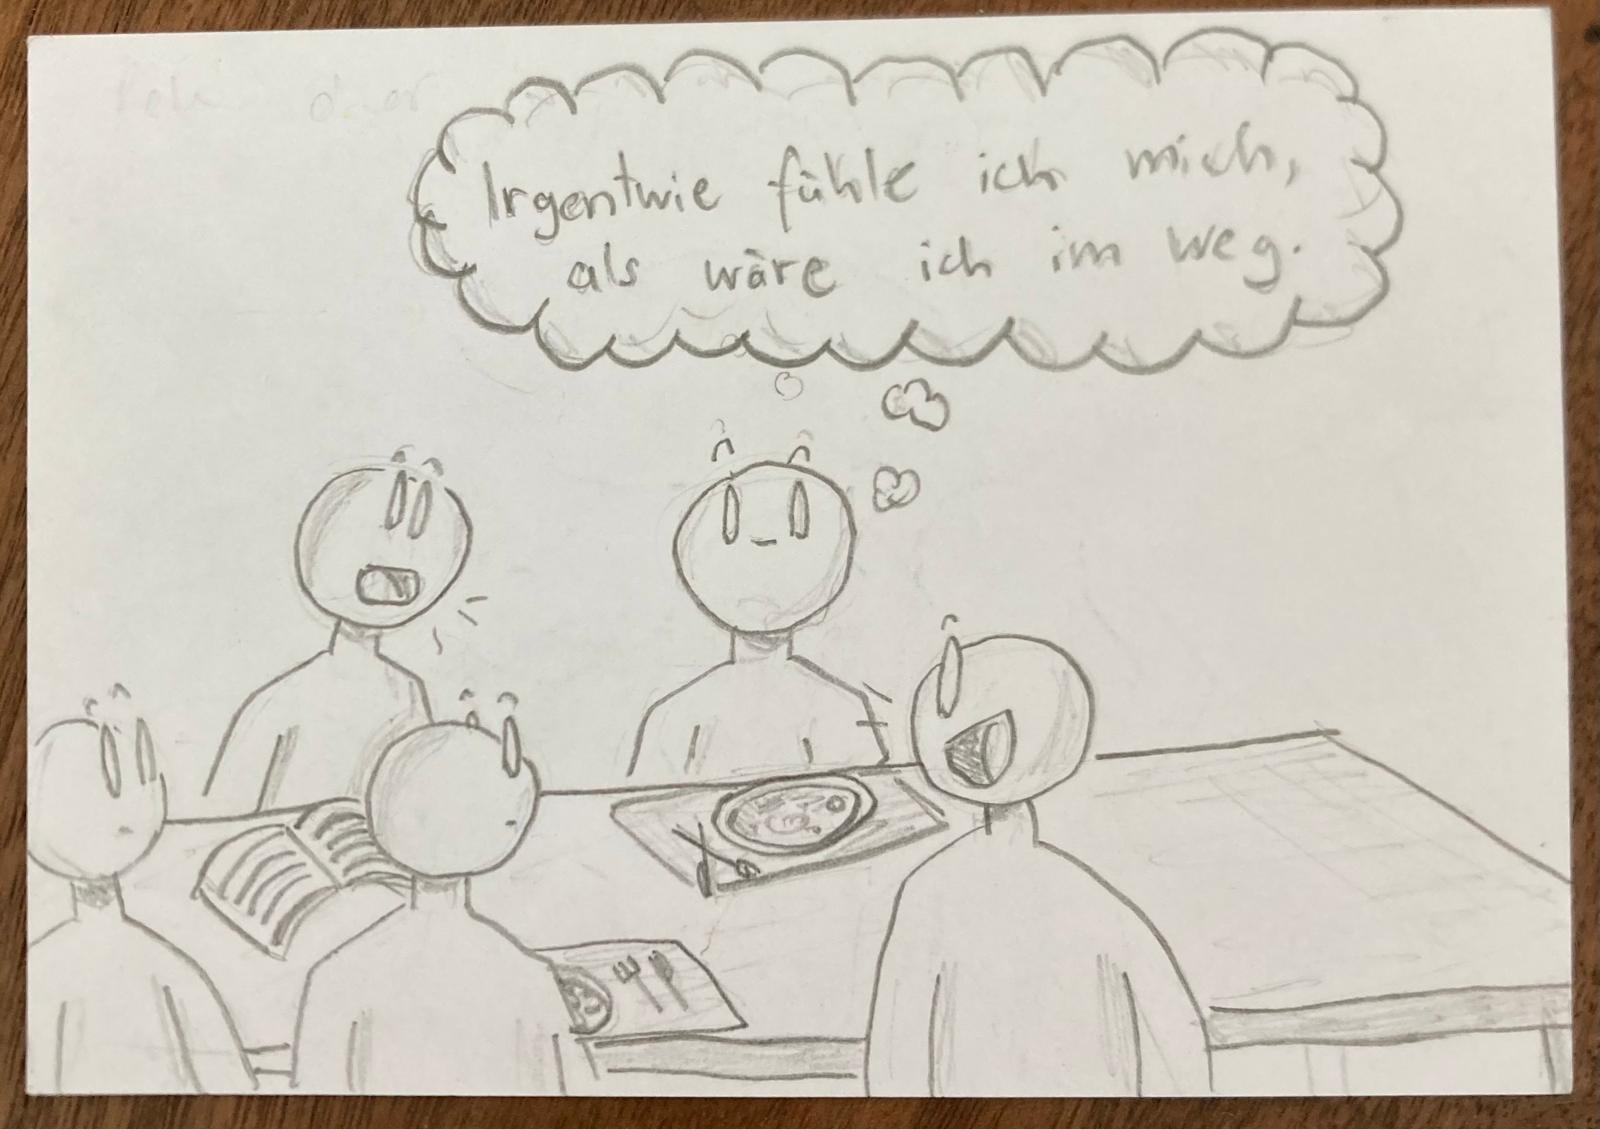 Irgentwie fühle ich mich,
als wäre ich im Weg.